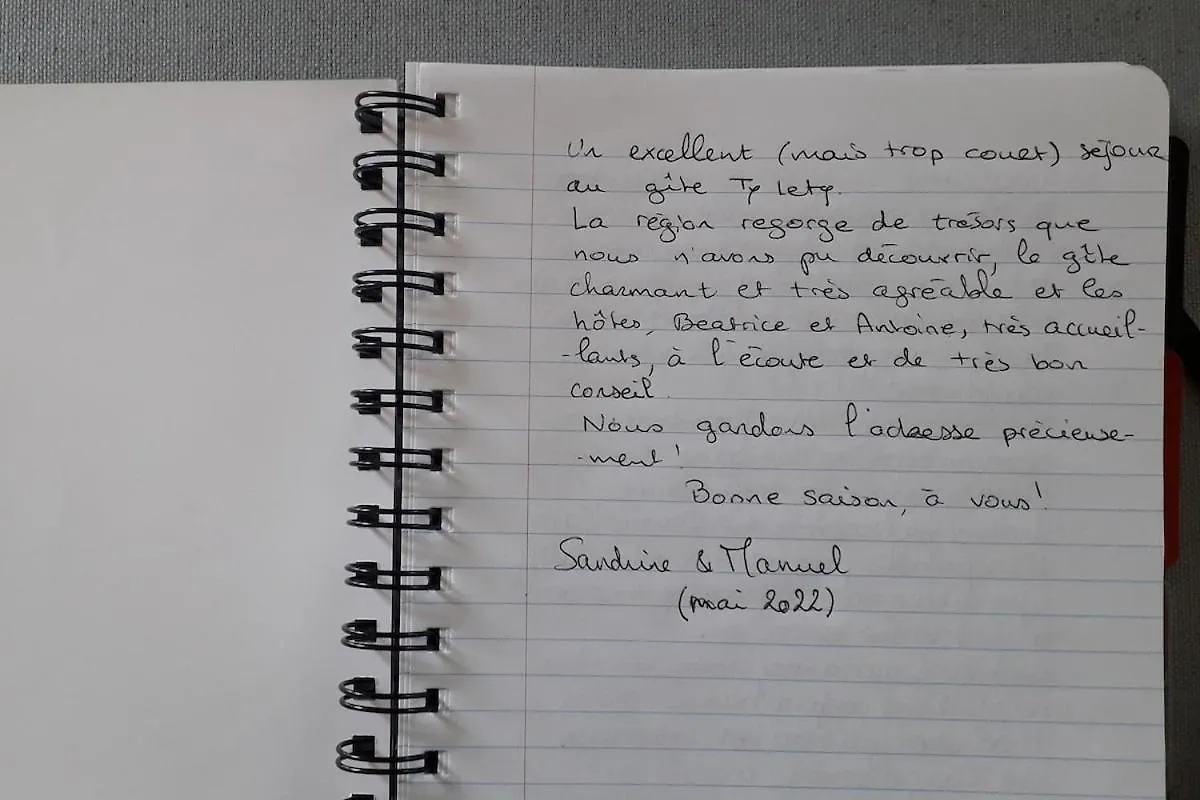 Un excellent (mais trop court) séjour
au gîte Ty Lety.
La région regorge de trésors que
nous n'avons pu découvrir, le gîte
charmant et très agréable et les
hôtes, Béatrice et Antoine, très accueil-
-lants, à l'écoute et de très bon
conseil.
Nous gardons l'adresse précieuse-
-ment !
Bonne saison, à vous !
Sandrine & Manuel
(mai 2022)